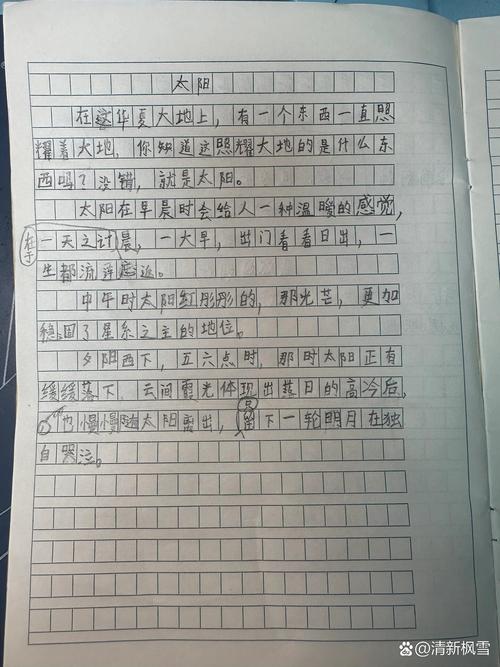 太阳
在这华夏大地上，有一个东西一直照
耀着大地，你知道这照耀大地的是什么东
西吗？没错，就是太阳。
太阳在早晨时会给人一种温暖的感觉，
一天之计在于晨，一大早，出门看看日出，一
生都流连忘返。
中午时太阳红彤彤的，那光芒，更加
稳固了星系之主的地位。
夕阳西下，五六点时，那时太阳正有
缓缓落下，云间霞光体现出日的高冷后，
也慢慢随太阳离出，只留下一轮明月在独
自哭泣。
清新枫雪